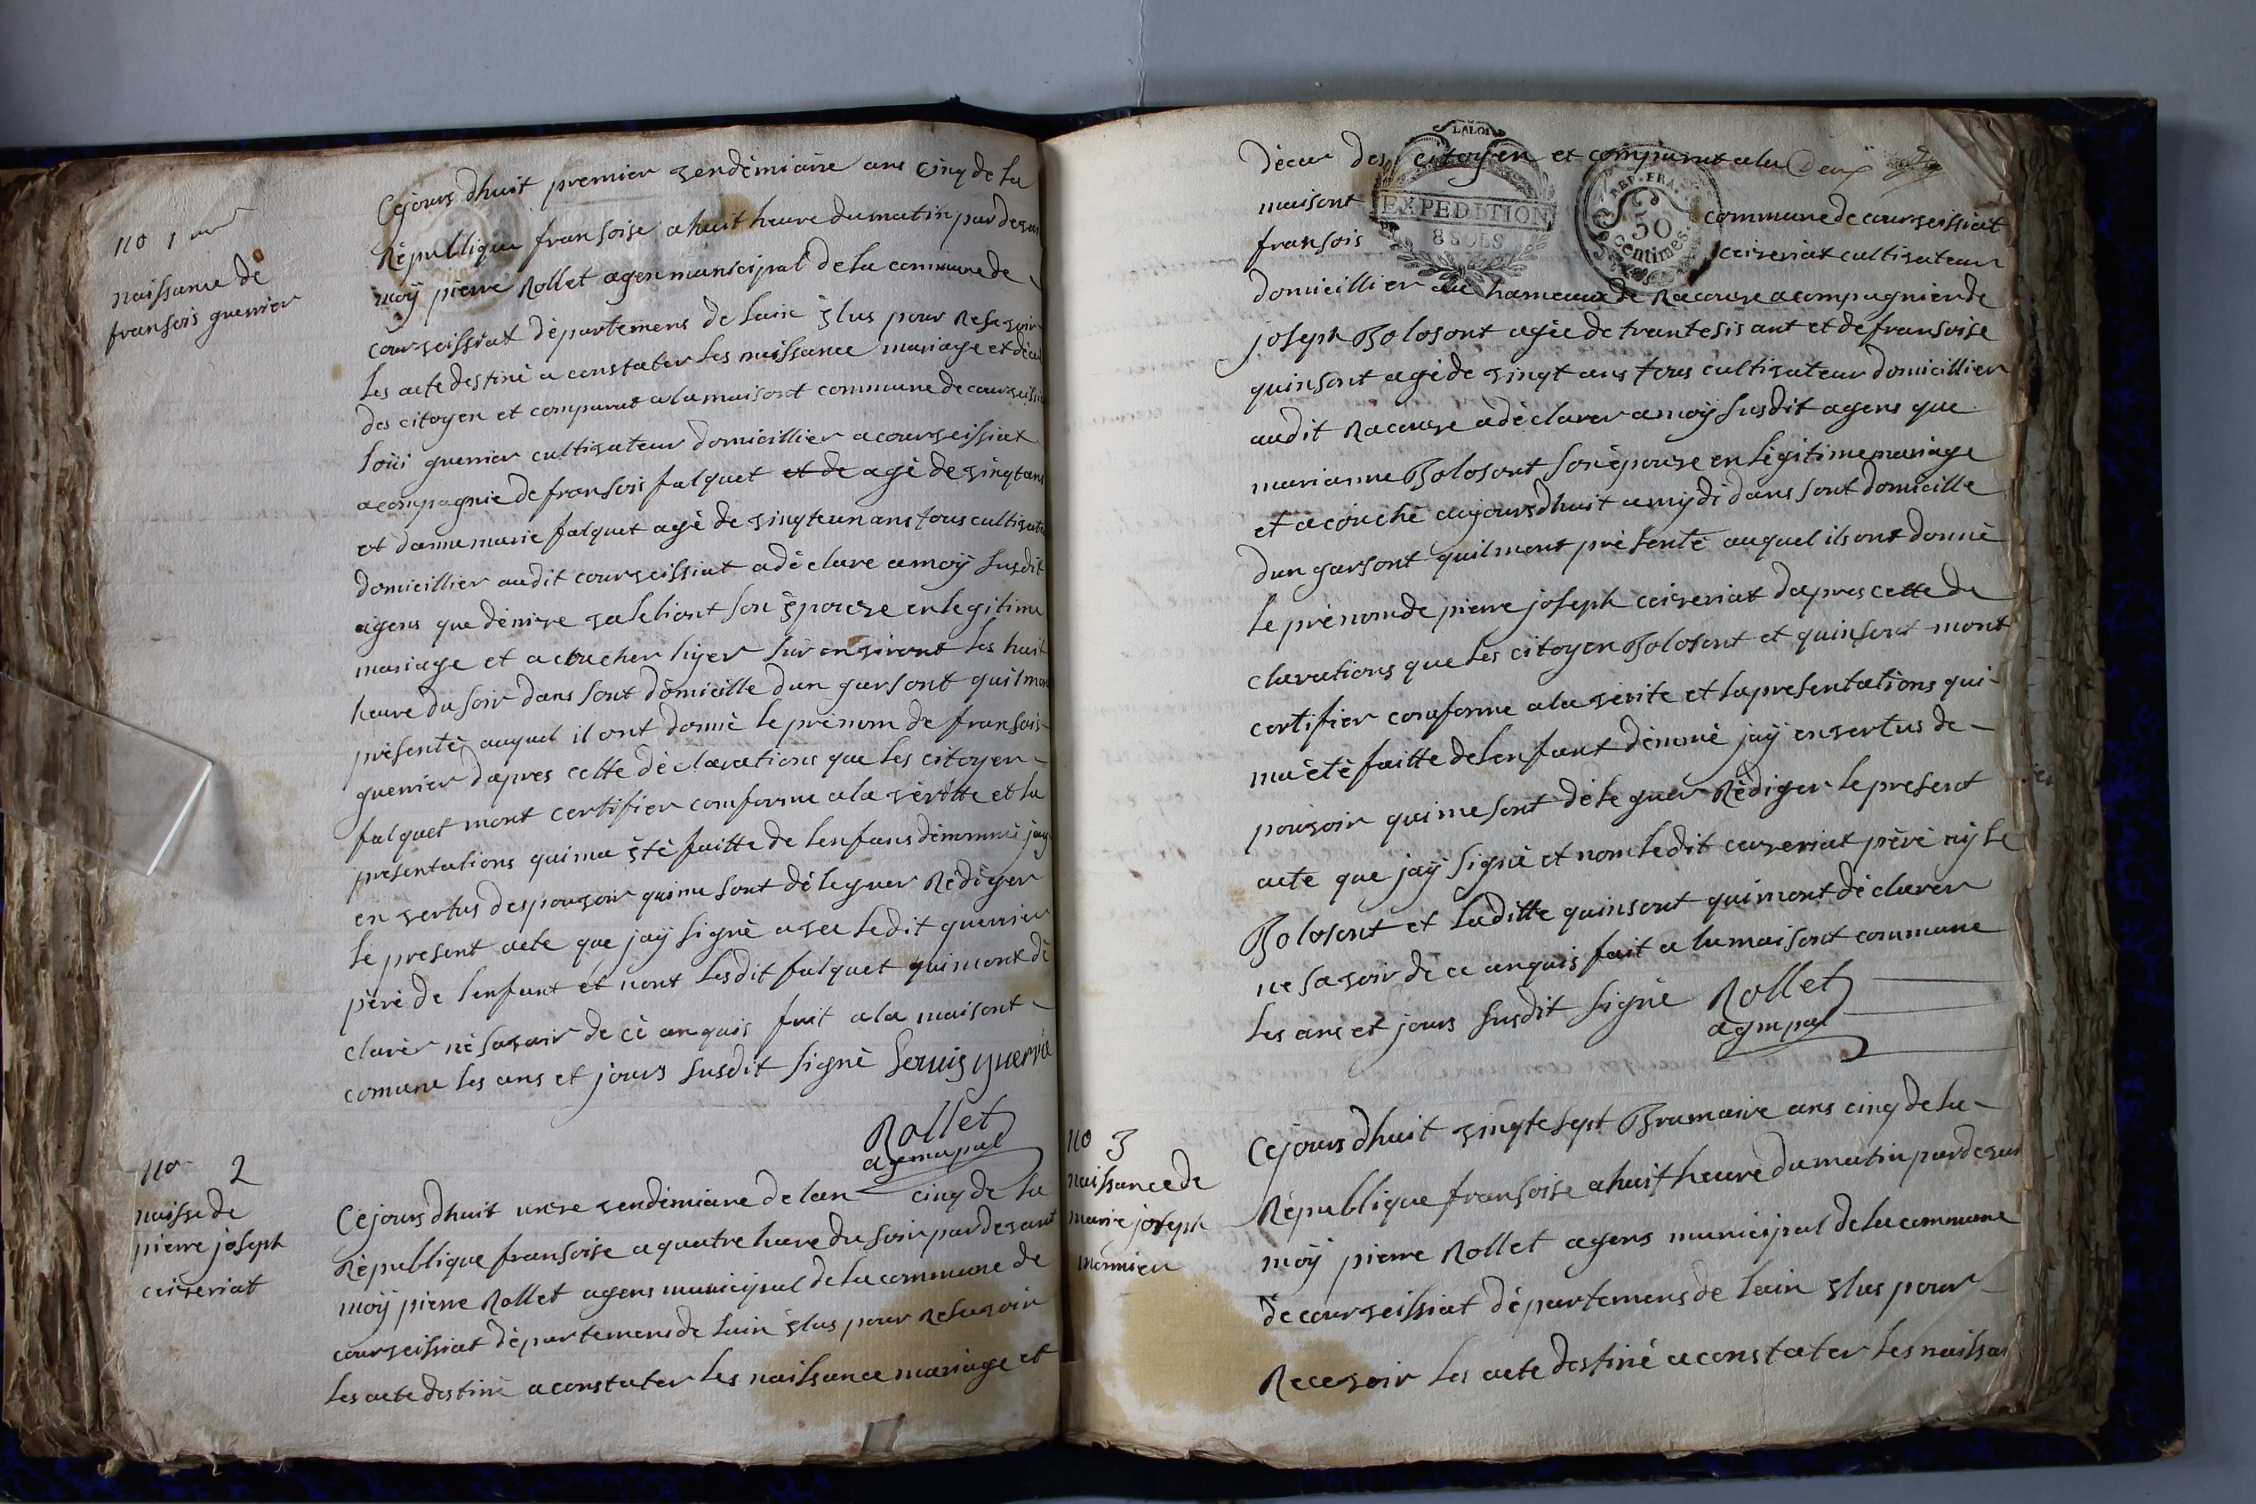 no 1 er
naissance de
fransois guerrier
Cejours dhuit premier vendèmiaire ans cinq de la
Rèpublique fransoise a huit heure du matin par devan
moÿ pierre Rollet agen municipal de la commune de
courveissiat dèpartemens de lain èlus pour Resevoir
les acte destinè a constater les naissance mariage et dèce
des citoyen et comparut a la maisont commune de courveissia
loüi guerrier cultivateur domicillier a courveissiat
acompagnie de fransois falquet et de agè de vingt ans
et danne marie falquet agè de vingt eun ans tous cultivate
domicillier audit courveissiat a dèclare a moÿ susdit
agens que dènive valeliont son èpouse en legitime
mariage et a coucher hyer sur environt les huit
heure du soir dans sont domicille dun garsont quil mon
prèsentè auquel il ont donnè le prènom de fransois
guerrier dapres cette dèclarations que les citoyen
falquet mont certifier comforme a la vèritte et la
presentations qui ma ètè faitte de lenfans dènommè jay
en vertus des pouvoir qui me sont dèleguer Rèdiger
le present acte que jaÿ signè avec ledit guerrier
père de lenfant et nont lesdit falquet qui mont dè
clarèr nè savoir de cè anquis fait a la maisont
comune les ans et jours susdit signè Louis guerrié
Rollet
agmupal
no 2
naisse de
pierre joseph
ceiveriat
Cejours dhuit unze vendèmiaire de lan cinq de la
Rèpublique fransoise a quatre heure du soir par devant
moÿ pierre Rollet agens municipal de la commune de
courveissiat dèpartemens de lain èlus pour Resevoir
les acte destinè a constater les naissance mariage et
dècer des citoyen et comparut a la Deux
LA LOI
EXPEDITION
8 SOLS
REP. FRA.
50
centimes.
maisont commune de courveissiat
fransois ceiveriat cultivateur
domicillier au hameaux de Racouse acompagnier de
joseph Bolosont agèe de trante sis ant et de fransoise
quinsont agè de vingt ans tous cultivateur domicillier
audit Racouse a dèclarer a moÿ susdit agens que
marianne Bolosont son èpouse en lègitime mariage
et a couchè aujours dhuit a mydi dans sont domicille
dun garsont quil mont prèsentè auquel ils ont donnè
le prènom de pierre joseph ceiveriat dapres cette dè
clarations que les citoyen Bolosont et quinsont mont
certifier comforme a la vèrite et la presentations qui
ma ètè faitte de lenfant dènomè jaÿ en vertus de
pouvoir qui me sont dèleguer Rèdiger le present
acte que jaÿ signè et nom ledit ceiveriat père nÿ le
Bolosont et laditte quinsont qui mont dèclarer
ne savoir de ce anquis fait a la maisont commune
les ans et jours susdit signè Rollet
agmpal
no 3
naissance de
marie joseph
monnier
Cejours dhuit vingt e sept Brumaire ans cinq de la
Rèpublique fransoise a huit heure du matin par devan
moÿ pierre Rollet agens municipal de la commune
de courveissiat dèpartemens de lain èlus pour
Recevoir les acte destinè a constater les naissan